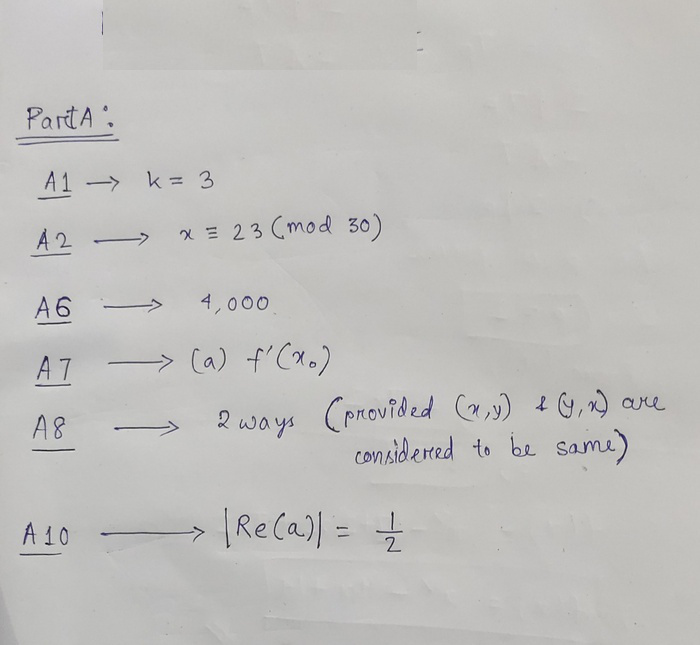 Part A :
A1 → k = 3
A2 → x ≡ 23 (mod 30)
A6 → 4,000
A7 → (a) f'(x₀)
A8 → 2 ways (provided (x,y) & (y,x) are
considered to be same)
A10 → |Re(a)| = 1/2